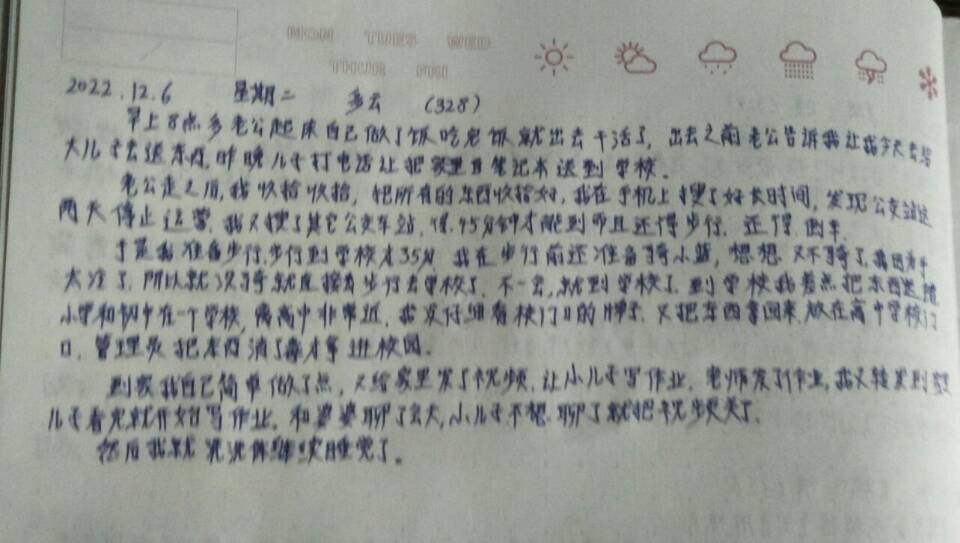 MON TUES WED
THUR FRI
2022.12.6 星期二 多云 (328)
早上8点多老公起床自己做了饭吃完饭就出去干活了,出去之前老公告诉我让我今天去给
大儿子去送东西,昨晚儿子打电话让把家里日笔记本送到学校。
老公走之后,我收拾收拾,把所有的东西收拾好,我在手机上搜了好长时间,发现公交站这
两天停止运营,我又搜了其它公交车站,得45分钟才能到而且还得步行,还得倒车。
于是我准备步行,步行到学校才35分 我在步行前还准备骑小蓝,想想又不骑了,我因为
太冷了,所以就没骑就直接去步行去学校了,不一会,就到学校了,到学校我差点把东西送错
小学和初中在一个学校,离高中非常近,我又仔细看校门口的牌子,又把东西拿回来,放在高中学校门
口,管理员把东西消了毒才拿进校园。
到家我自己简单做了点,又给家里发了视频,让小儿子写作业,老师发了作业,我又转发到
儿子看完就开始写作业,和婆婆聊了会天,小儿子不想聊了就把视频关了。
然后我就洗洗继续睡觉了。